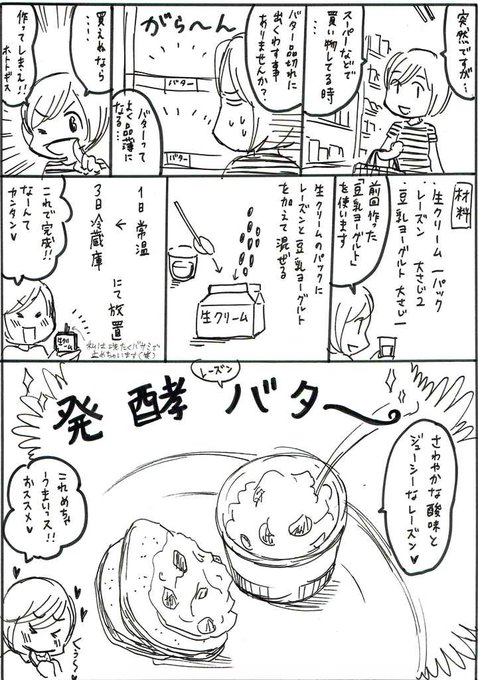 突然ですが…
スーパーなどで
買い物してる時
バター品切れに
出くわす事
ありませんか?
がら〜ん
バター
バター
バターって
よく品薄に
なる…
買えぬなら
……
作ってしまえ!!
ホトトギス
材料
生クリーム 一パック
レーズン 大さじ2
豆乳ヨーグルト 大さじ一
前回作った
「豆乳ヨーグルト」
を使います
生クリームのパックに
レーズンと豆乳ヨーグルト
を加えて混ぜる
生クリーム
1日 常温
↓
3日 冷蔵庫
にて放置
これで完成!!
なーんて
カンタン♥
私は洗たくバサミで
止めちゃいます(笑)
レーズン
発酵バタ〜
さわやかな酸味と
ジューシーなレーズン♥
これめちゃ
うまいっス!!
おススメ♥
くぅ〜